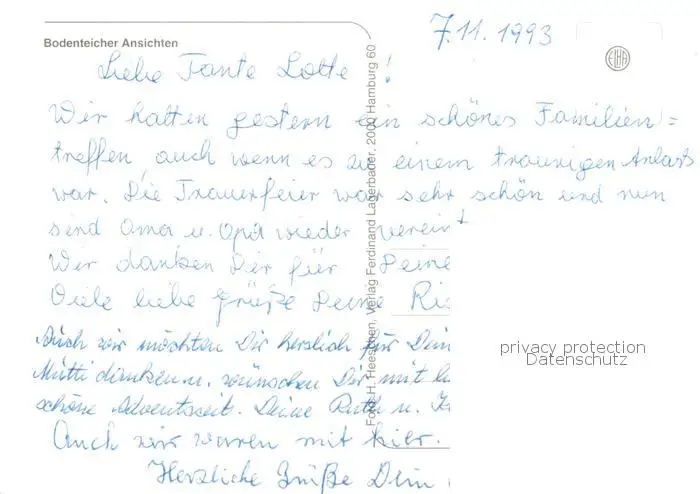 Bodenteicher Ansichten
7.11.1993
EKH
Liebe Tante Lotte!
Wir hatten gestern ein schönes Familien=
treffen, auch wenn es zu einem traurigen Anlass
war. Die Trauerfeier war sehr schön und nun
sind Oma u. Opa wieder vereint
Wir danken Dir für Deine
Viele liebe Grüße Deine
Auch wir möchten Dir herzlich für
Mutti danken u. wünschen Dir mit
schöne Adventszeit. Deine Ruth u.
Auch wir waren mit hier.
Herzliche Grüße Dein
Foto: H. Heeschen, Verlag Ferdinand Lagerbauer, 2000 Hamburg 60
privacy protection
Datenschutz